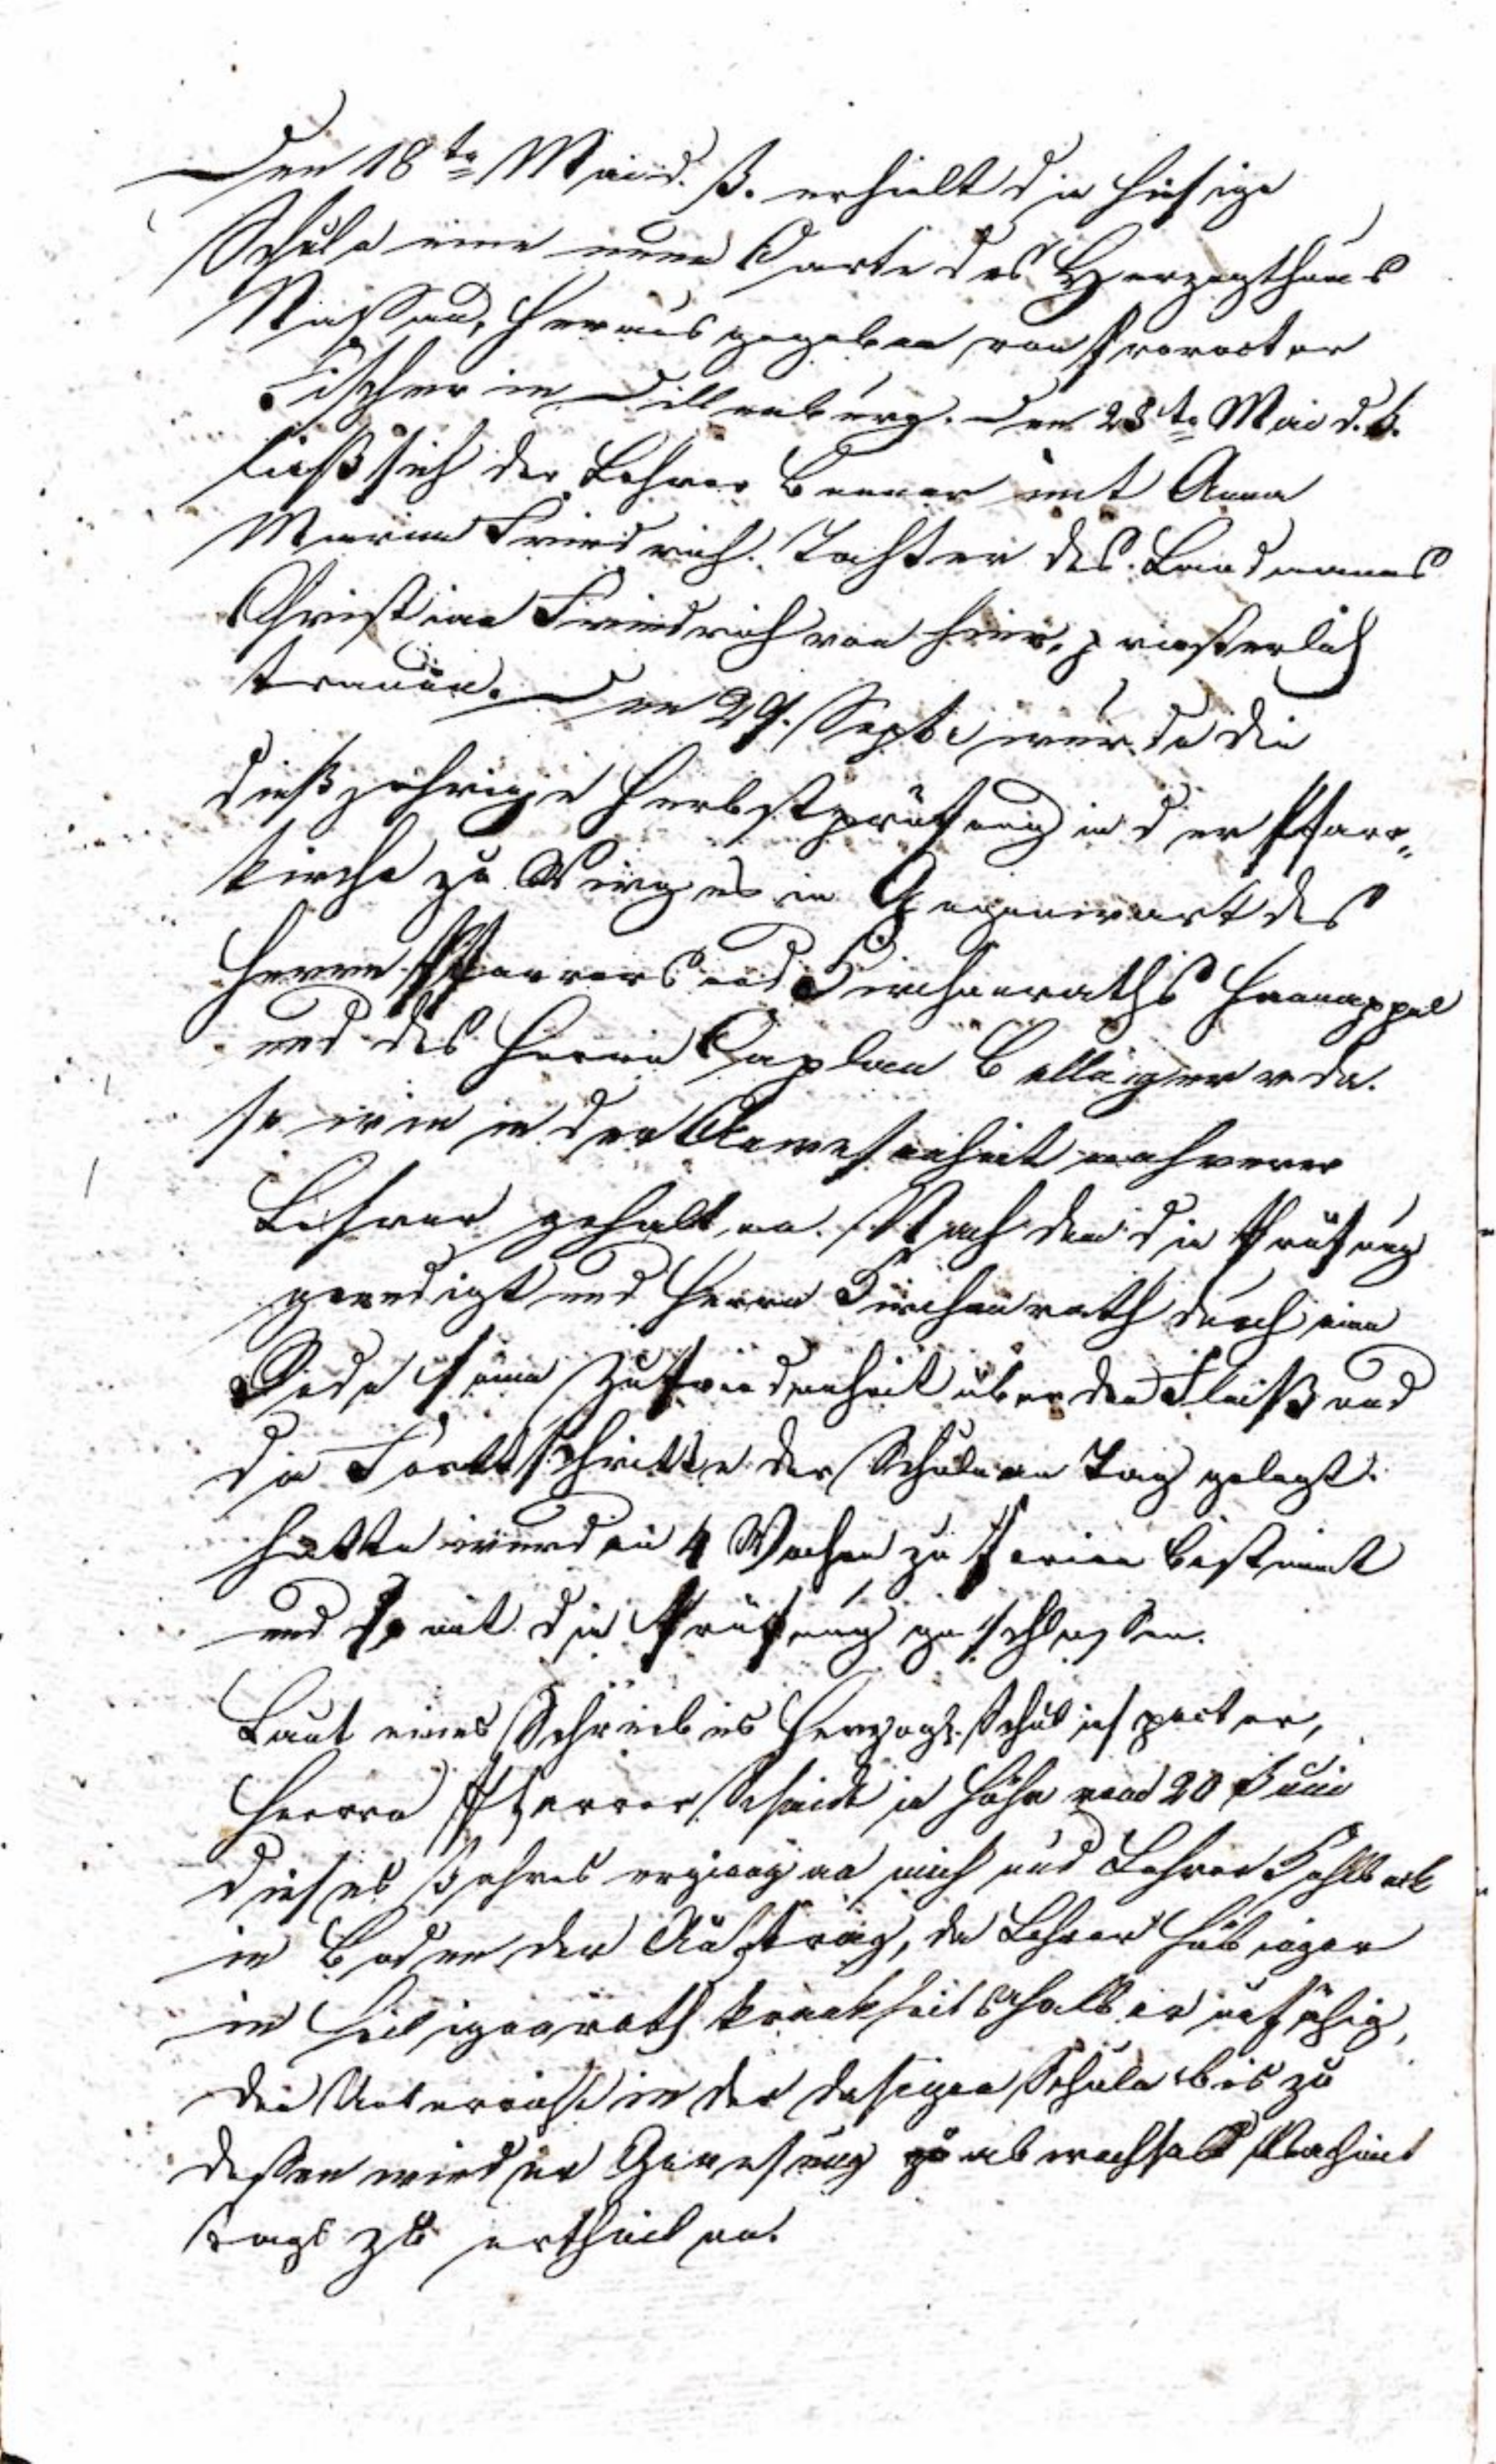 Den 18te Mai d. J. erhielt die hiesige
Schule eine neue Carte des Herzogthums
Nassau, herausgegeben von Prorector
Fischer in Dillenburg. Den 28te Mai d. J.
ließ sich der Lehrer Benner mit Anna
Maria Friedrich, Tochter des Landmanns
Christian Friedrich von hier, priesterlich
trauen. Den 29. Septb wurde die
dießjährige Herbstprüfung in der Pfarr„
kirche zu Wirges in Gegenwart des
Herrn Pfarrers und Kirchenraths Hannappel
und des Herrn Caplan Bellinger
so wie in der Anwesenheit mehrerer
Lehrer gehalten. Nachdem die Prüfung
geendigt und Herrn Kirchenrath durch eine
Rede seine Zufriedenheit über den Fleiß und
die Fortschritte der Schule an Tag gelegt
hatte wurden 4 Wochen zu Ferien bestimmt
und so mit die Prüfung geschlossen.
Laut eines Schreibens Herzogl. Schulinspector,
Herrn Pfarrer in Höhn vom 20 Juni
dieses Jahres erging an mich und Lehrer
in Boden der Auftrag, da Lehrer Hübinger
in Heiligenroth krankheitshalber unfähig,
den Unterricht in der dasigen Schule bis zu
dessen wieder Genesung abwechselnd Nachmit
tags zu ertheilen.